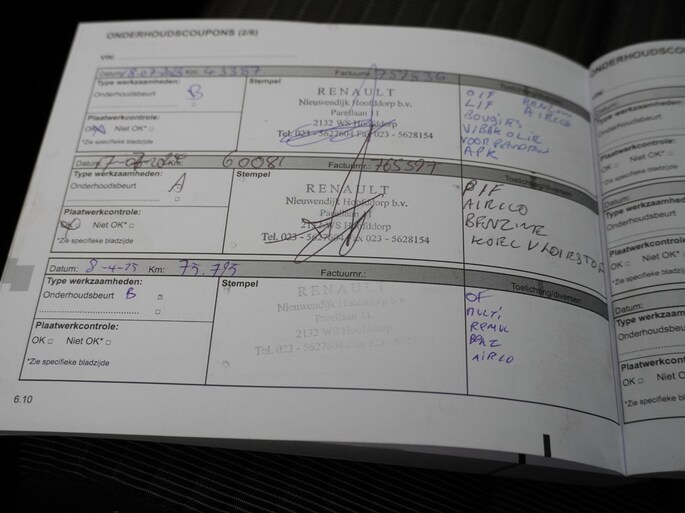 ONDERHOUDSCOUPONS (2/6)
VIN:
Datum: Km: 43387 Factuurnr.: 757536
Type werkzaamheden: Stempel Toelichting/diversen:
Onderhoudsbeurt B
RENAULT
Nieuwendijk Hoofddorp b.v.
Parellaan 11
2132 WS Hoofddorp
Tel. 023 - 5627604 Fax 023 - 5628154
Plaatwerkcontrole:
OK Niet OK*
*Zie specifieke bladzijde
OIF BENZINE
LIF AIRCO
BOUGIES
APK
Datum: 60081 Factuurnr.: 765597
Type werkzaamheden: Stempel Toelichting/diversen:
Onderhoudsbeurt A
RENAULT
Nieuwendijk Hoofddorp b.v.
Parellaan 11
2132 WS Hoofddorp
Tel. 023 - Fax 023 - 5628154
Plaatwerkcontrole:
Niet OK*
*Zie specifieke bladzijde
AIRCO
BENZINE
Datum: 8-4-25 Km: 75.795 Factuurnr.: Toelichting/diversen:
Type werkzaamheden: Stempel
Onderhoudsbeurt B
RENAULT
Nieuwendijk Hoofddorp b.v.
Parellaan 11
2132 WS Hoofddorp
Plaatwerkcontrole:
OK Niet OK*
*Zie specifieke bladzijde
OF
MULTI
REMK
AIRCO
6.10
ONDERHOUDSC
VIN:
Datum:
Type werkzaam
Onderhoudsbeurt
Plaatwerkcontrole:
OK Niet OK
*Zie specifieke bladz
Datum:
Type werkzaamhe
Onderhoudsbeurt
Plaatwerkcontrole:
OK Niet OK*
*Zie specifieke bladzijd
Datum:
Type werkzaamhe
Onderhoudsbeurt
Plaatwerkcontrole:
OK Niet OK*
*Zie specifieke bladzijd